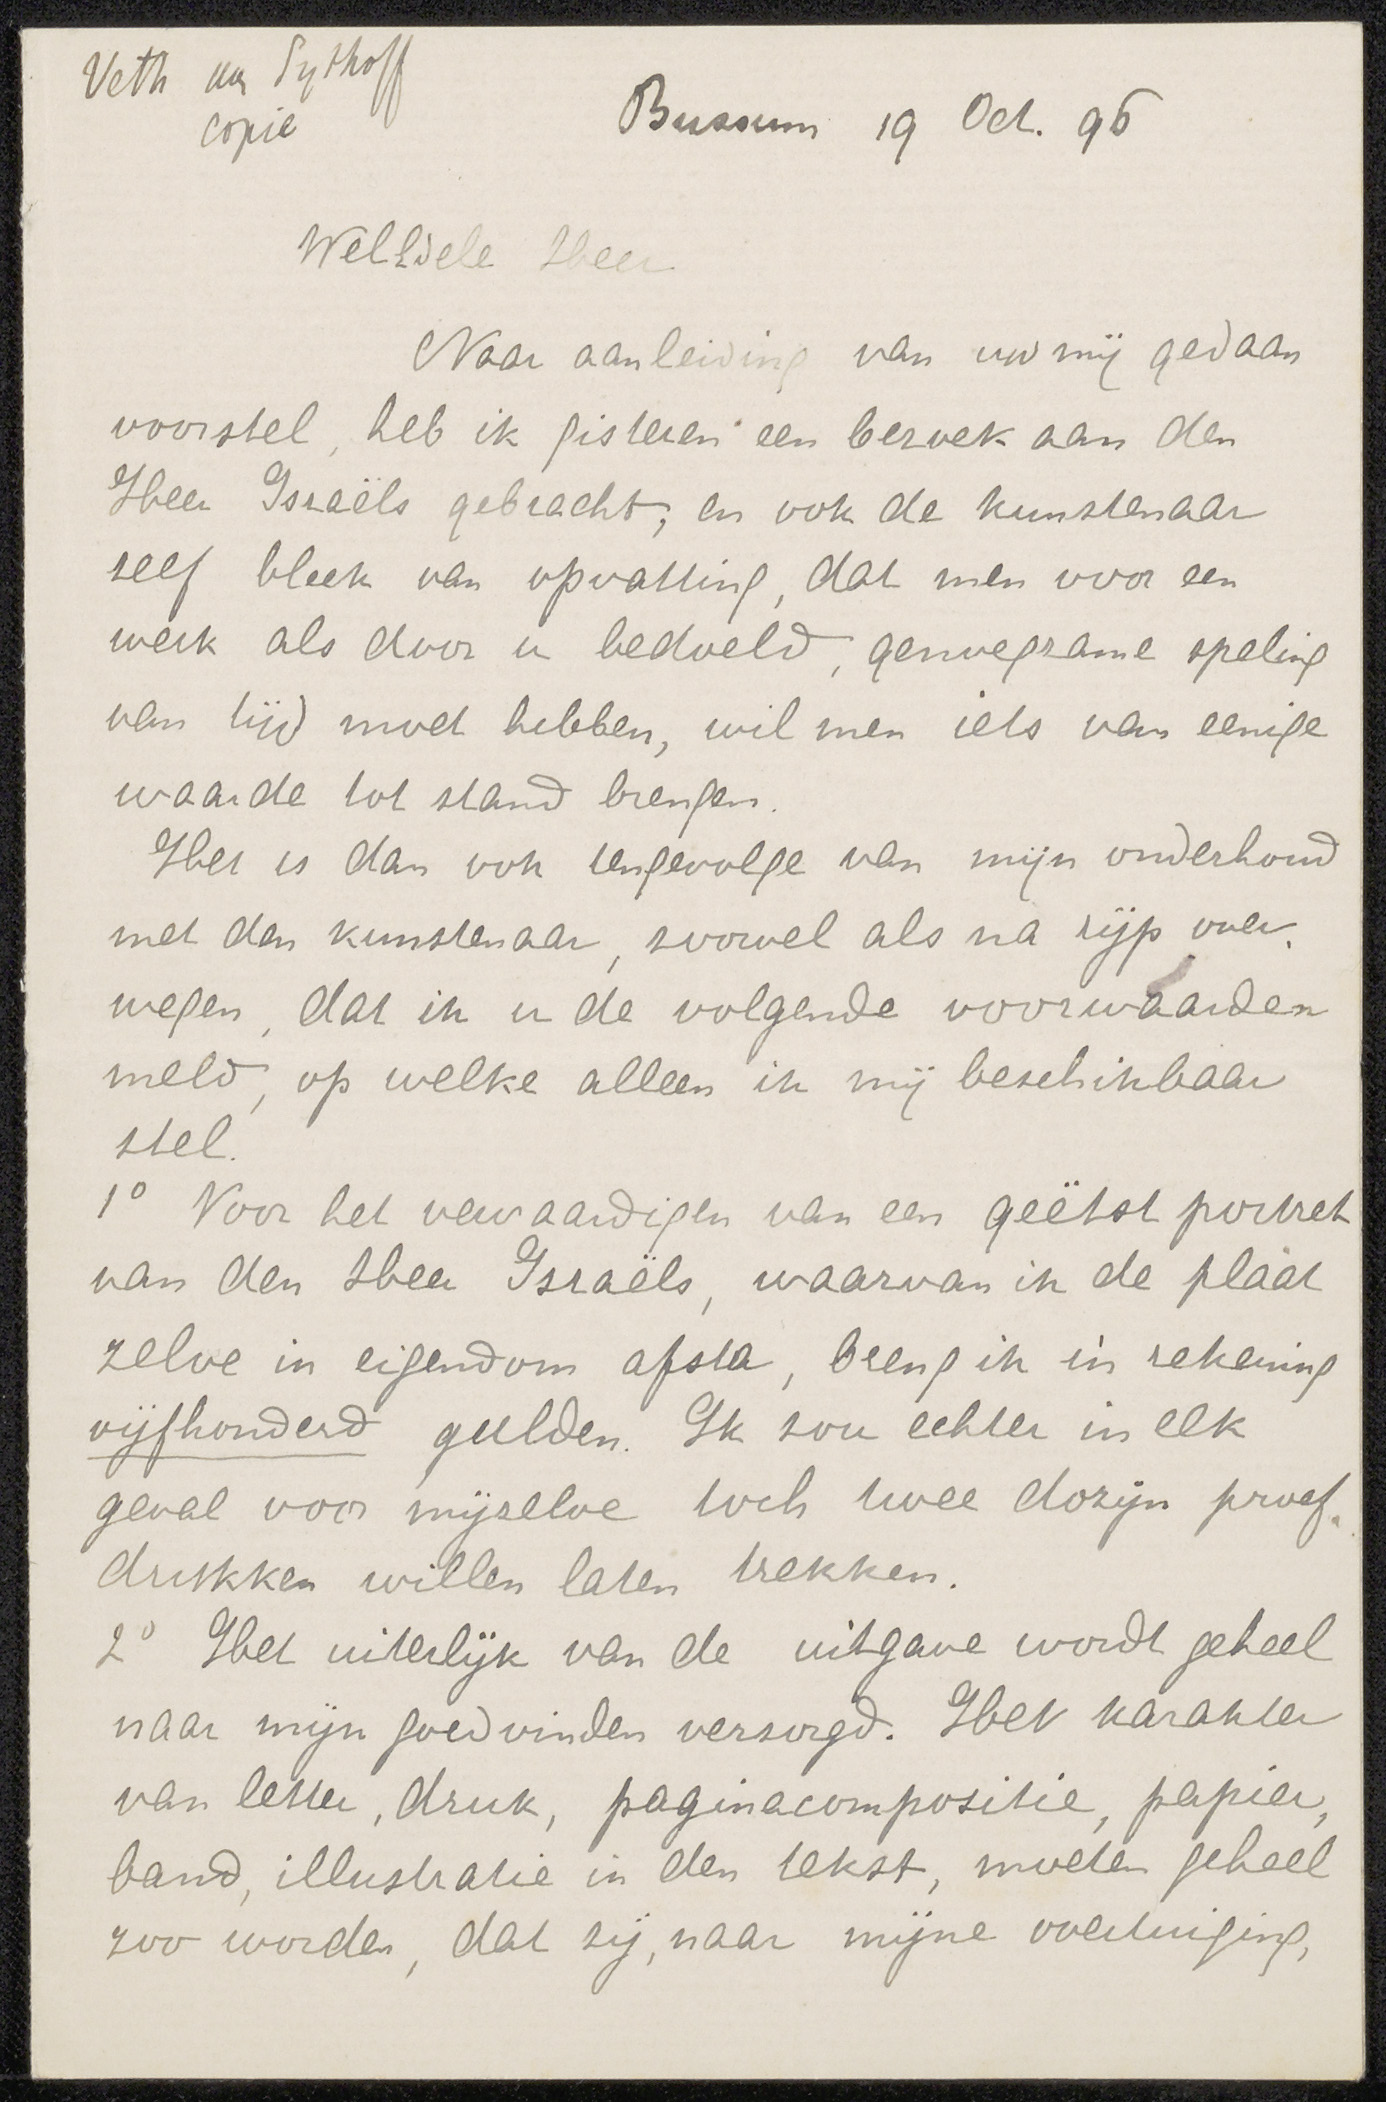 Veth aan Sythoff
copie
Bussum 19 Oct. 96
WelEdele Heer
Naar aanleiding van uw mij gedaan
voorstel, heb ik gisteren een bezoek aan den
Heer Israëls gebracht, en ook de kunstenaar
zelf bleek van opvatting, dat men voor een
werk als door u bedoeld, genoegzame speling
van tijd moet hebben, wil men iets van eenige
waarde tot stand brengen.
Het is dan ook tengevolge van mijn onderhoud
met den kunstenaar, zoowel als na rijp over-
wegen, dat ik u de volgende voorwaarden
meld, op welke alleen ik mij beschikbaar
stel.
1° Voor het vervaardigen van een geëtst portret
van den Heer Israëls, waarvan ik de plaat
zelve in eigendom afsta, breng ik in rekening
vijfhonderd gulden. Ik zou echter in elk
geval voor mijzelve toch twee dozijn proef-
drukken willen laten trekken.
2° Het uiterlijk van de uitgave wordt geheel
naar mijn goedvinden verzorgd. Het karakter
van letter, druk, paginacompositie, papier,
band, illustratie in den tekst, moeten geheel
zoo worden, dat zij, naar mijne overtuiging,